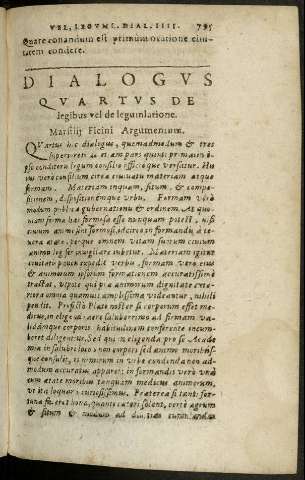 VEL, LEGVM. DIAL. IIII. 795
Quare conandum est primum oratione ciui-
tatem condere.
DIALOGVS
QVARTVS DE
legibus vel de legumlatione.
Marsilij Ficini Argumentum.
QVartus hic dialogus, quemadmodum & tres
superiores
condera legum consilio efficioque versatur. Ho
rum vero consilium circa ciuitatis materiam atque
formam. Materiam inquam, situm, & compo-
sitionem, dispositionemque vrbis. Formam verò
modum publicae gubernationis & ordinem. At ciui-
tatis forma haec formosa esse nunquam potest, nisi
ciuium animi sint formosi, ideirco in formandis à te-
nera aetate, perque omnem vitam suorum ciuium
animis legifer inuigilare iubetur. Materiam igitur
ciuitatis paucis expedit verbis, formam verò eius
& animorum ipsorum formationem accuratissimè
tractat, vtpote qui prae animorum dignitate exte-
riora omnia quamuis amplissima videantur, nihili
pendit. Profectò Plato noster si corporum esset me-
dicus, in eligendo aere salubrerimo ad firmam va-
lidamque corporis habitudinem conferente incum-
beret diligenter. Sed qui in eligenda pro se Acade
mia insalubri loco non corporis sed animi morbis-
que consulit, is nimirum in vrbe condenda non ad-
modum accuratus apparet: in formandis verò vnà
cum aetate moribus tanquam medicus animorum,
vt ita loquar curiosissimus. Praeterea si tanti for-
tunae fecerit bona, quanti caeteri solent, certè agrum
& situm &